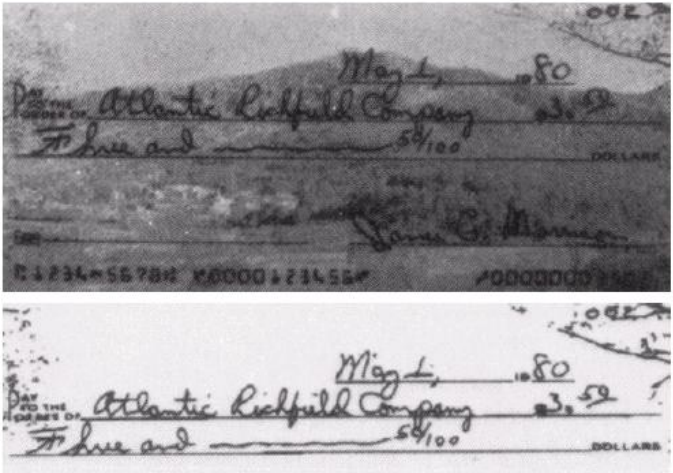 002
May 1, 1980
PAY TO THE ORDER OF Atlantic Richfield Company $3.50
Three and 50/100 DOLLARS
James C. Morrison
1234-5678 0000123456
002
May 1, 1980
PAY TO THE ORDER OF Atlantic Richfield Company $3.50
Three and 50/100 DOLLARS